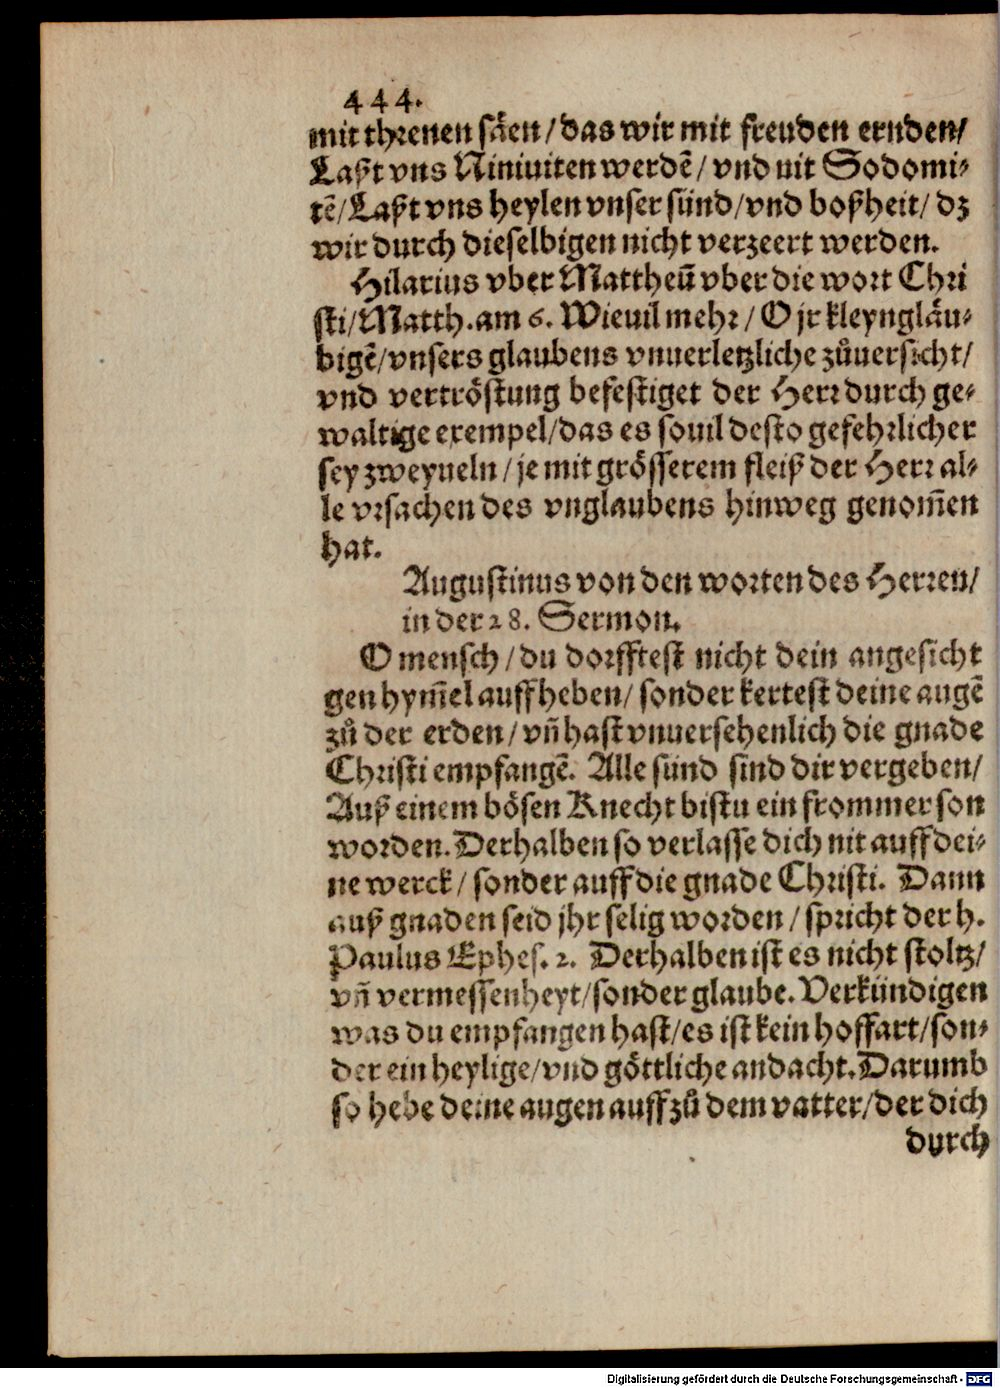 444.
mit threnen säen/das wir mit freuden ernden/
Laßt vns Niniuiten werdē/ vnd nit Sodomi⸗
tē/Laßt vns heylen vnser sünd/vnd boßheit/ dz
wir durch dieselbigen nicht verzeert werden.
Hilarius vber Mattheū vber die wort Chri
sti/Matth.am 6. Wieuil mehr/ O jr kleyngläu⸗
bigē/vnsers glaubens vnuerletzliche zůuersicht/
vnd vertröstung befestiget der Herr durch ge⸗
waltige exempel/das es souil desto gefehrlicher
sey zweyueln/je mit grösserem fleiß der Herr al⸗
le vrsachen des vnglaubens hinweg genom̄en
hat.
Augustinus von den worten des Herren/
in der 28. Sermon.
O mensch/du dorfftest nicht dein angesicht
gen hym̄el auffheben/ sonder kertest deine augē
zů der erden/vñ hast vnuersehenlich die gnade
Christi empfangē. Alle sünd sind dir vergeben/
Auß einem bösen Knecht bistu ein frommer son
worden. Derhalben so verlasse dich nit auff dei⸗
ne werck/ sonder auff die gnade Christi. Dann
auß gnaden seid jhr selig worden/spricht der h.
Paulus Ephes. 2. Derhalben ist es nicht stoltz/
vñ vermessenheyt/sonder glaube. Verkündigen
was du empfangen hast/es ist kein hoffart/son⸗
der ein heylige/vnd göttliche andacht. Darumb
so hebe deine augen auff zů dem vatter/der dich
durch
Digitalisierung gefördert durch die Deutsche Forschungsgemeinschaft - DFG